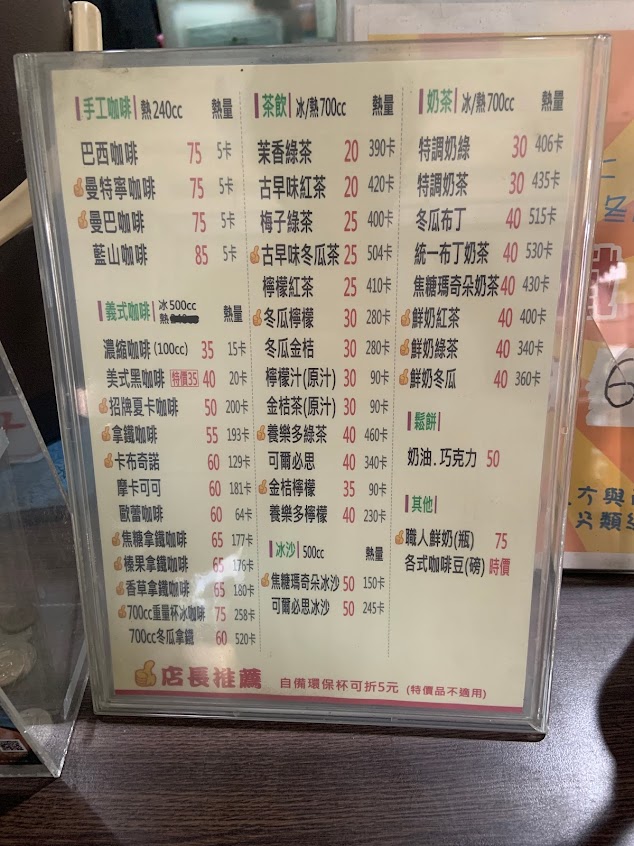 手工咖啡 熱240cc 熱量
巴西咖啡 75 5卡
曼特寧咖啡 75 5卡
曼巴咖啡 75 5卡
藍山咖啡 85 5卡
義式咖啡 冰500cc 熱量
熱
濃縮咖啡(100cc) 35 15卡
美式黑咖啡 特價35 40 20卡
招牌夏卡咖啡 50 200卡
拿鐵咖啡 55 193卡
卡布奇諾 60 129卡
摩卡可可 60 181卡
歐蕾咖啡 60 64卡
焦糖拿鐵咖啡 65 177卡
榛果拿鐵咖啡 65 176卡
香草拿鐵咖啡 65 180卡
700cc重量杯冰咖啡 75 258卡
700cc冬瓜拿鐵 60 520卡
茶飲 冰/熱700cc 熱量
茉香綠茶 20 390卡
古早味紅茶 20 420卡
梅子綠茶 25 400卡
古早味冬瓜茶 25 504卡
檸檬紅茶 25 410卡
冬瓜檸檬 30 280卡
冬瓜金桔 30 280卡
檸檬汁(原汁) 30 90卡
金桔茶(原汁) 30 90卡
養樂多綠茶 40 460卡
可爾必思 40 340卡
金桔檸檬 35 90卡
養樂多檸檬 40 230卡
冰沙 500cc 熱量
焦糖瑪奇朵冰沙 50 150卡
可爾必思冰沙 50 245卡
奶茶 冰/熱700cc 熱量
特調奶綠 30 406卡
特調奶茶 30 435卡
冬瓜布丁 40 515卡
統一布丁奶茶 40 530卡
焦糖瑪奇朵奶茶 40 430卡
鮮奶紅茶 40 400卡
鮮奶綠茶 40 340卡
鮮奶冬瓜 40 360卡
鬆餅
奶油.巧克力 50
其他
職人鮮奶(瓶) 75
各式咖啡豆(磅) 時價
店長推薦 自備環保杯可折5元 (特價品不適用)